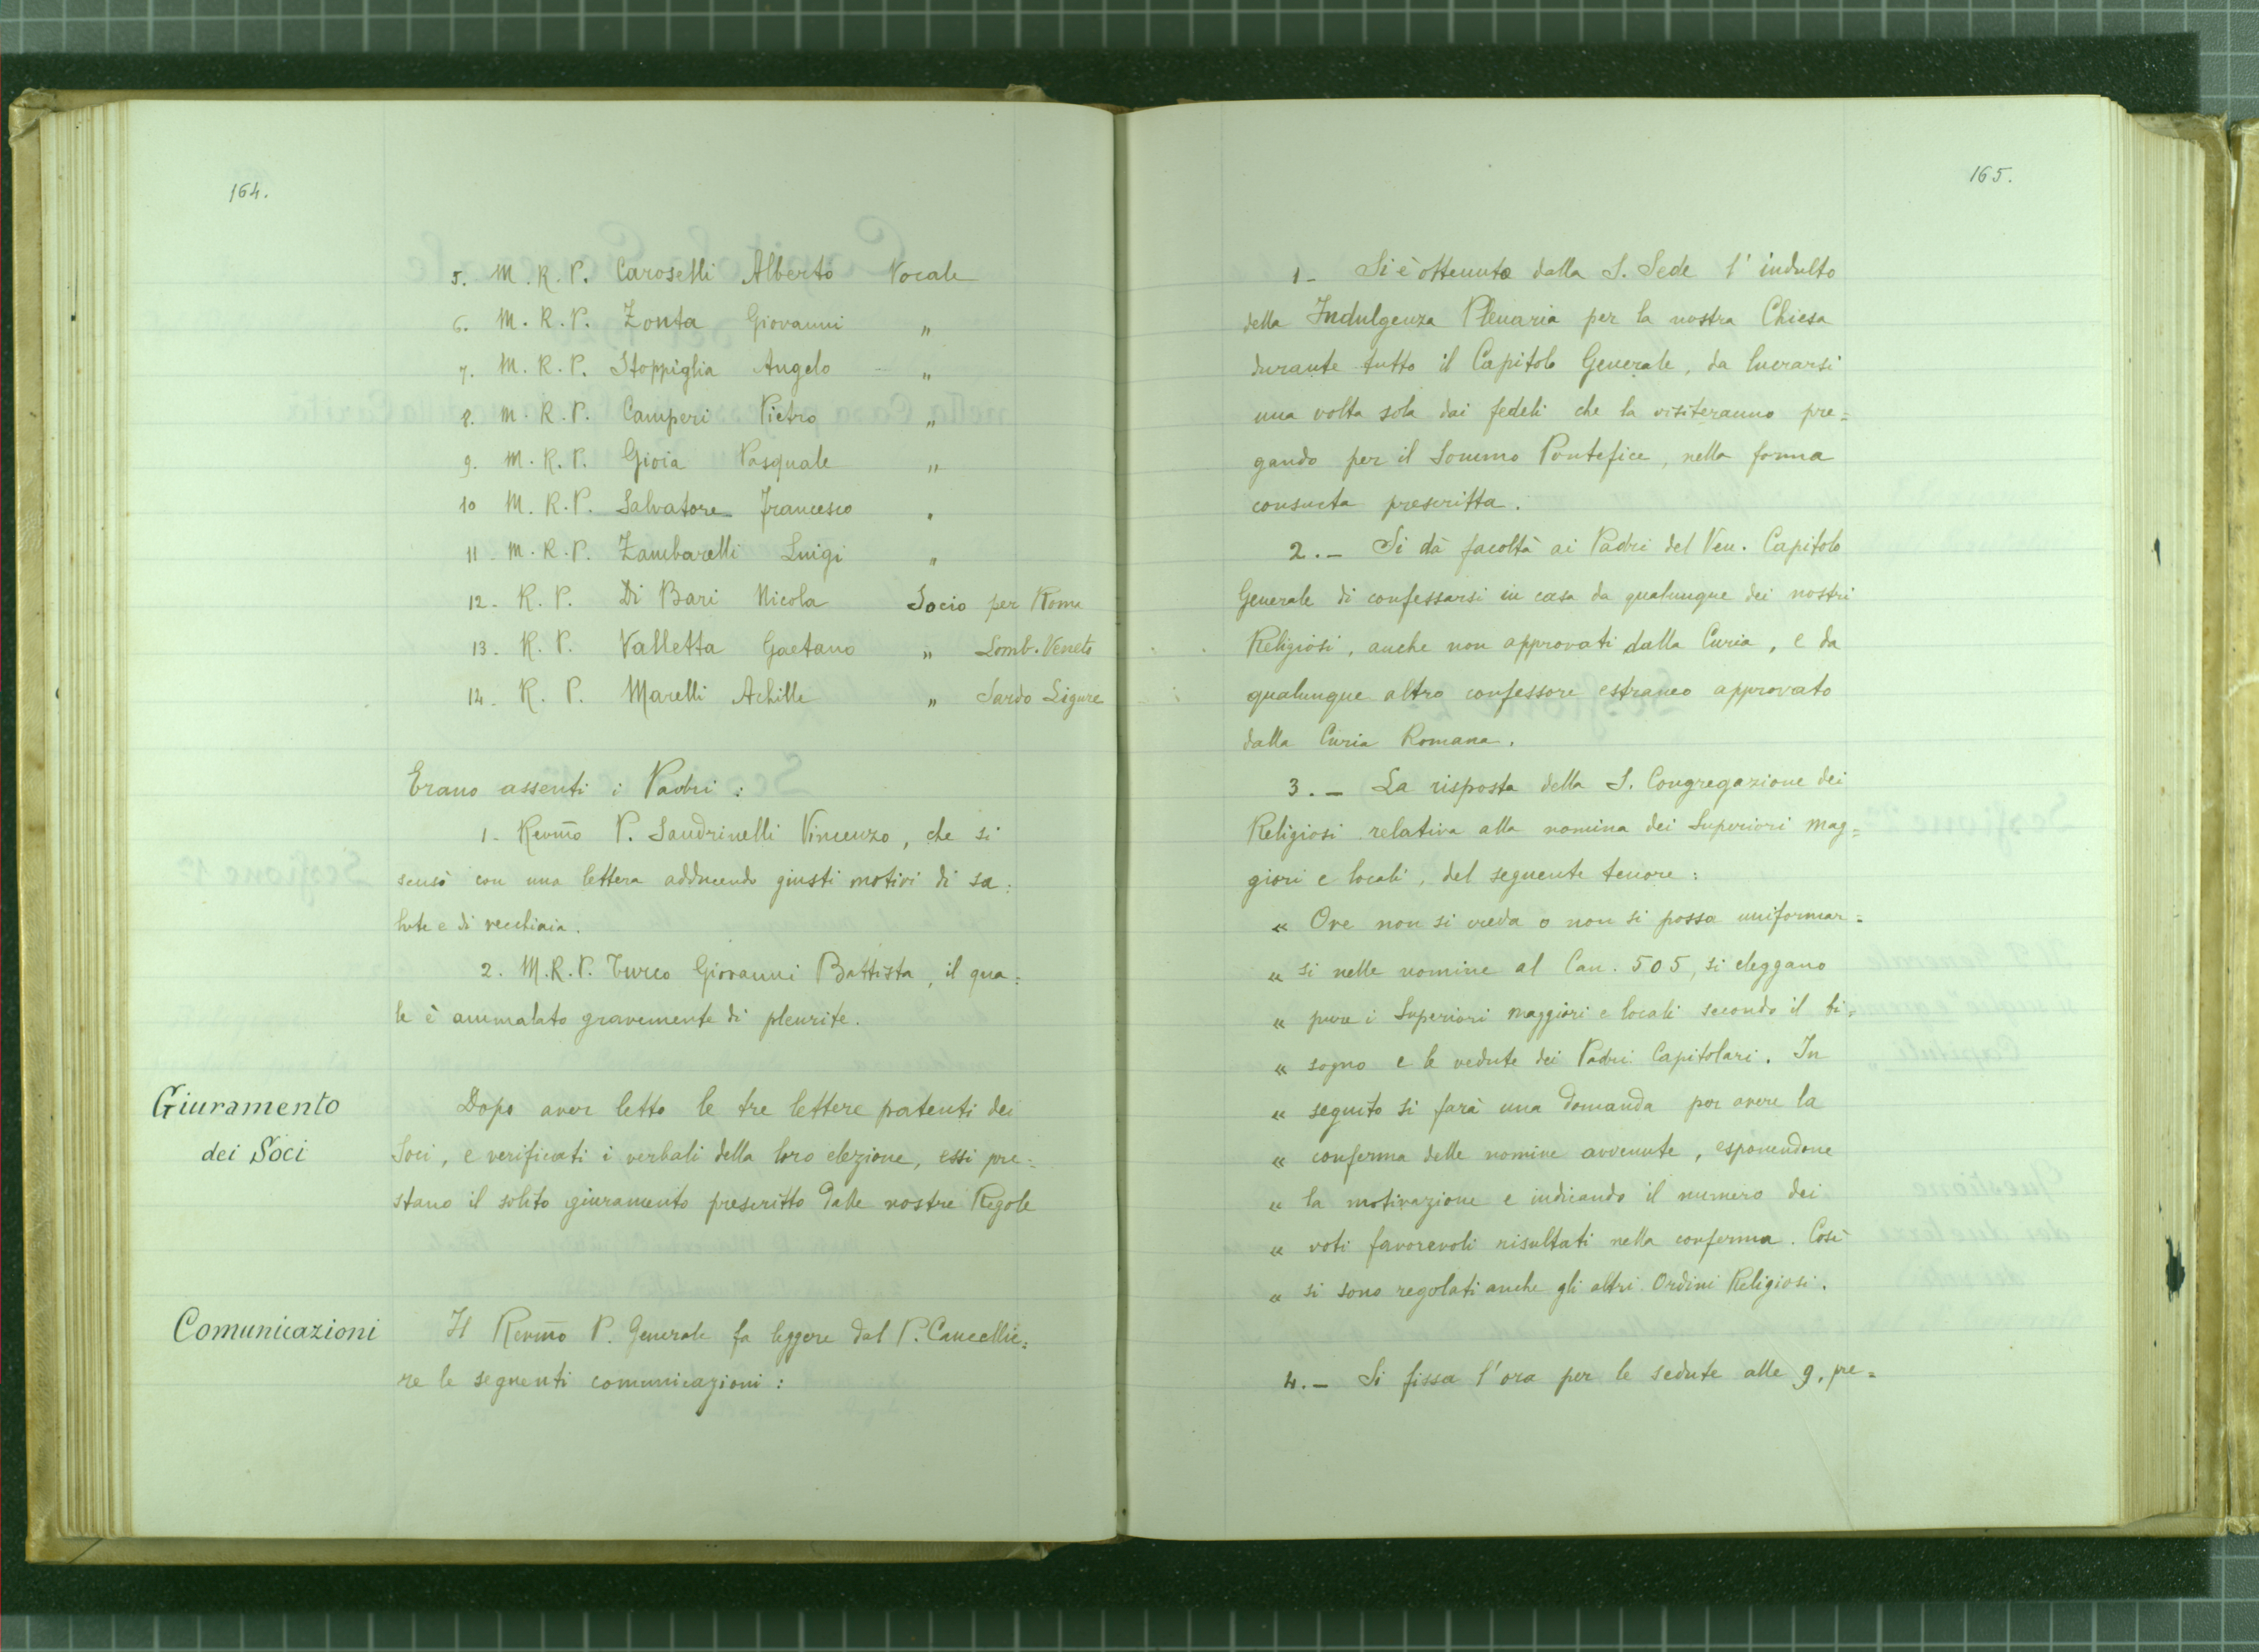 164.
5. M. R. P. Caroselli Alberto Vocale
6. M. R. P. Zonta Giovanni "
7. M. R. P. Stoppiglia Angelo "
8. M. R. P. Camperi Pietro "
9. M. R. P. Gioia Pasquale "
10 M. R. P. Salvatore Francesco "
11 - M. R. P. Zambarelli Luigi "
12 - R. P. Di Bari Nicola Socio per Roma
13. R. P. Valletta Gaetano " Lomb. Veneto
14 - R. P. Marelli Achille " Sardo Ligure
Erano assenti i Padri :
1 - Revmo P. Sandrinelli Vincenzo, che si
scusò con una lettera adducendo giusti motivi di sa=
lute e di vecchiaia.
2. M. R. P. Turco Giovanni Battista, il qua=
le è ammalato gravemente di pleurite.
Giuramento
dei Soci
Dopo aver letto le tre lettere patenti dei
Soci, e verificati i verbali della loro elezione, essi pre=
stano il solito giuramento prescritto dalle nostre Regole
Comunicazioni
Il Revmo P. Generale fa leggere dal P. Cancellie=
re le seguenti comunicazioni :
165.
1 - Si è ottenuto dalla S. Sede l'indulto
della Indulgenza Plenaria per la nostra Chiesa
durante tutto il Capitolo Generale, da lucrarsi
una volta sola dai fedeli che la visiteranno pre=
gando per il Sommo Pontefice, nella forma
consueta prescritta.
2. - Si dà facoltà ai Padri del Ven. Capitolo
Generale di confessarsi in casa da qualunque dei nostri
Religiosi, anche non approvati dalla Curia, e da
qualunque altro confessore estraneo approvato
dalla Curia Romana.
3. - La risposta della S. Congregazione dei
Religiosi relativa alla nomina dei Superiori mag=
giori e locali, del seguente tenore :
« Ove non si creda o non si possa uniformar=
« si nelle nomine al Can. 505, si eleggano
« pure i Superiori maggiori e locali secondo il bi=
« sogno e le vedute dei Padri Capitolari. In
« seguito si farà una domanda per avere la
« conferma delle nomine avvenute, esponendone
« la motivazione e indicando il numero dei
« voti favorevoli risultati nella conferma. Così
« si sono regolati anche gli altri Ordini Religiosi.
4. - Si fissa l'ora per le sedute alle 9, pre=